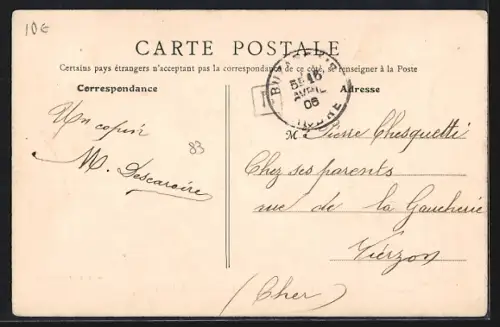 10€
CARTE POSTALE
Certains pays étrangers n'acceptant pas la correspondance de ce côté, se renseigner à la Poste
Correspondance
Adresse
5E 15
AVRIL
06
INDRE
Un copain
M.
83
M Pierre
Chez ses parents
rue de la Gaucherie
Vierzon
(Cher)